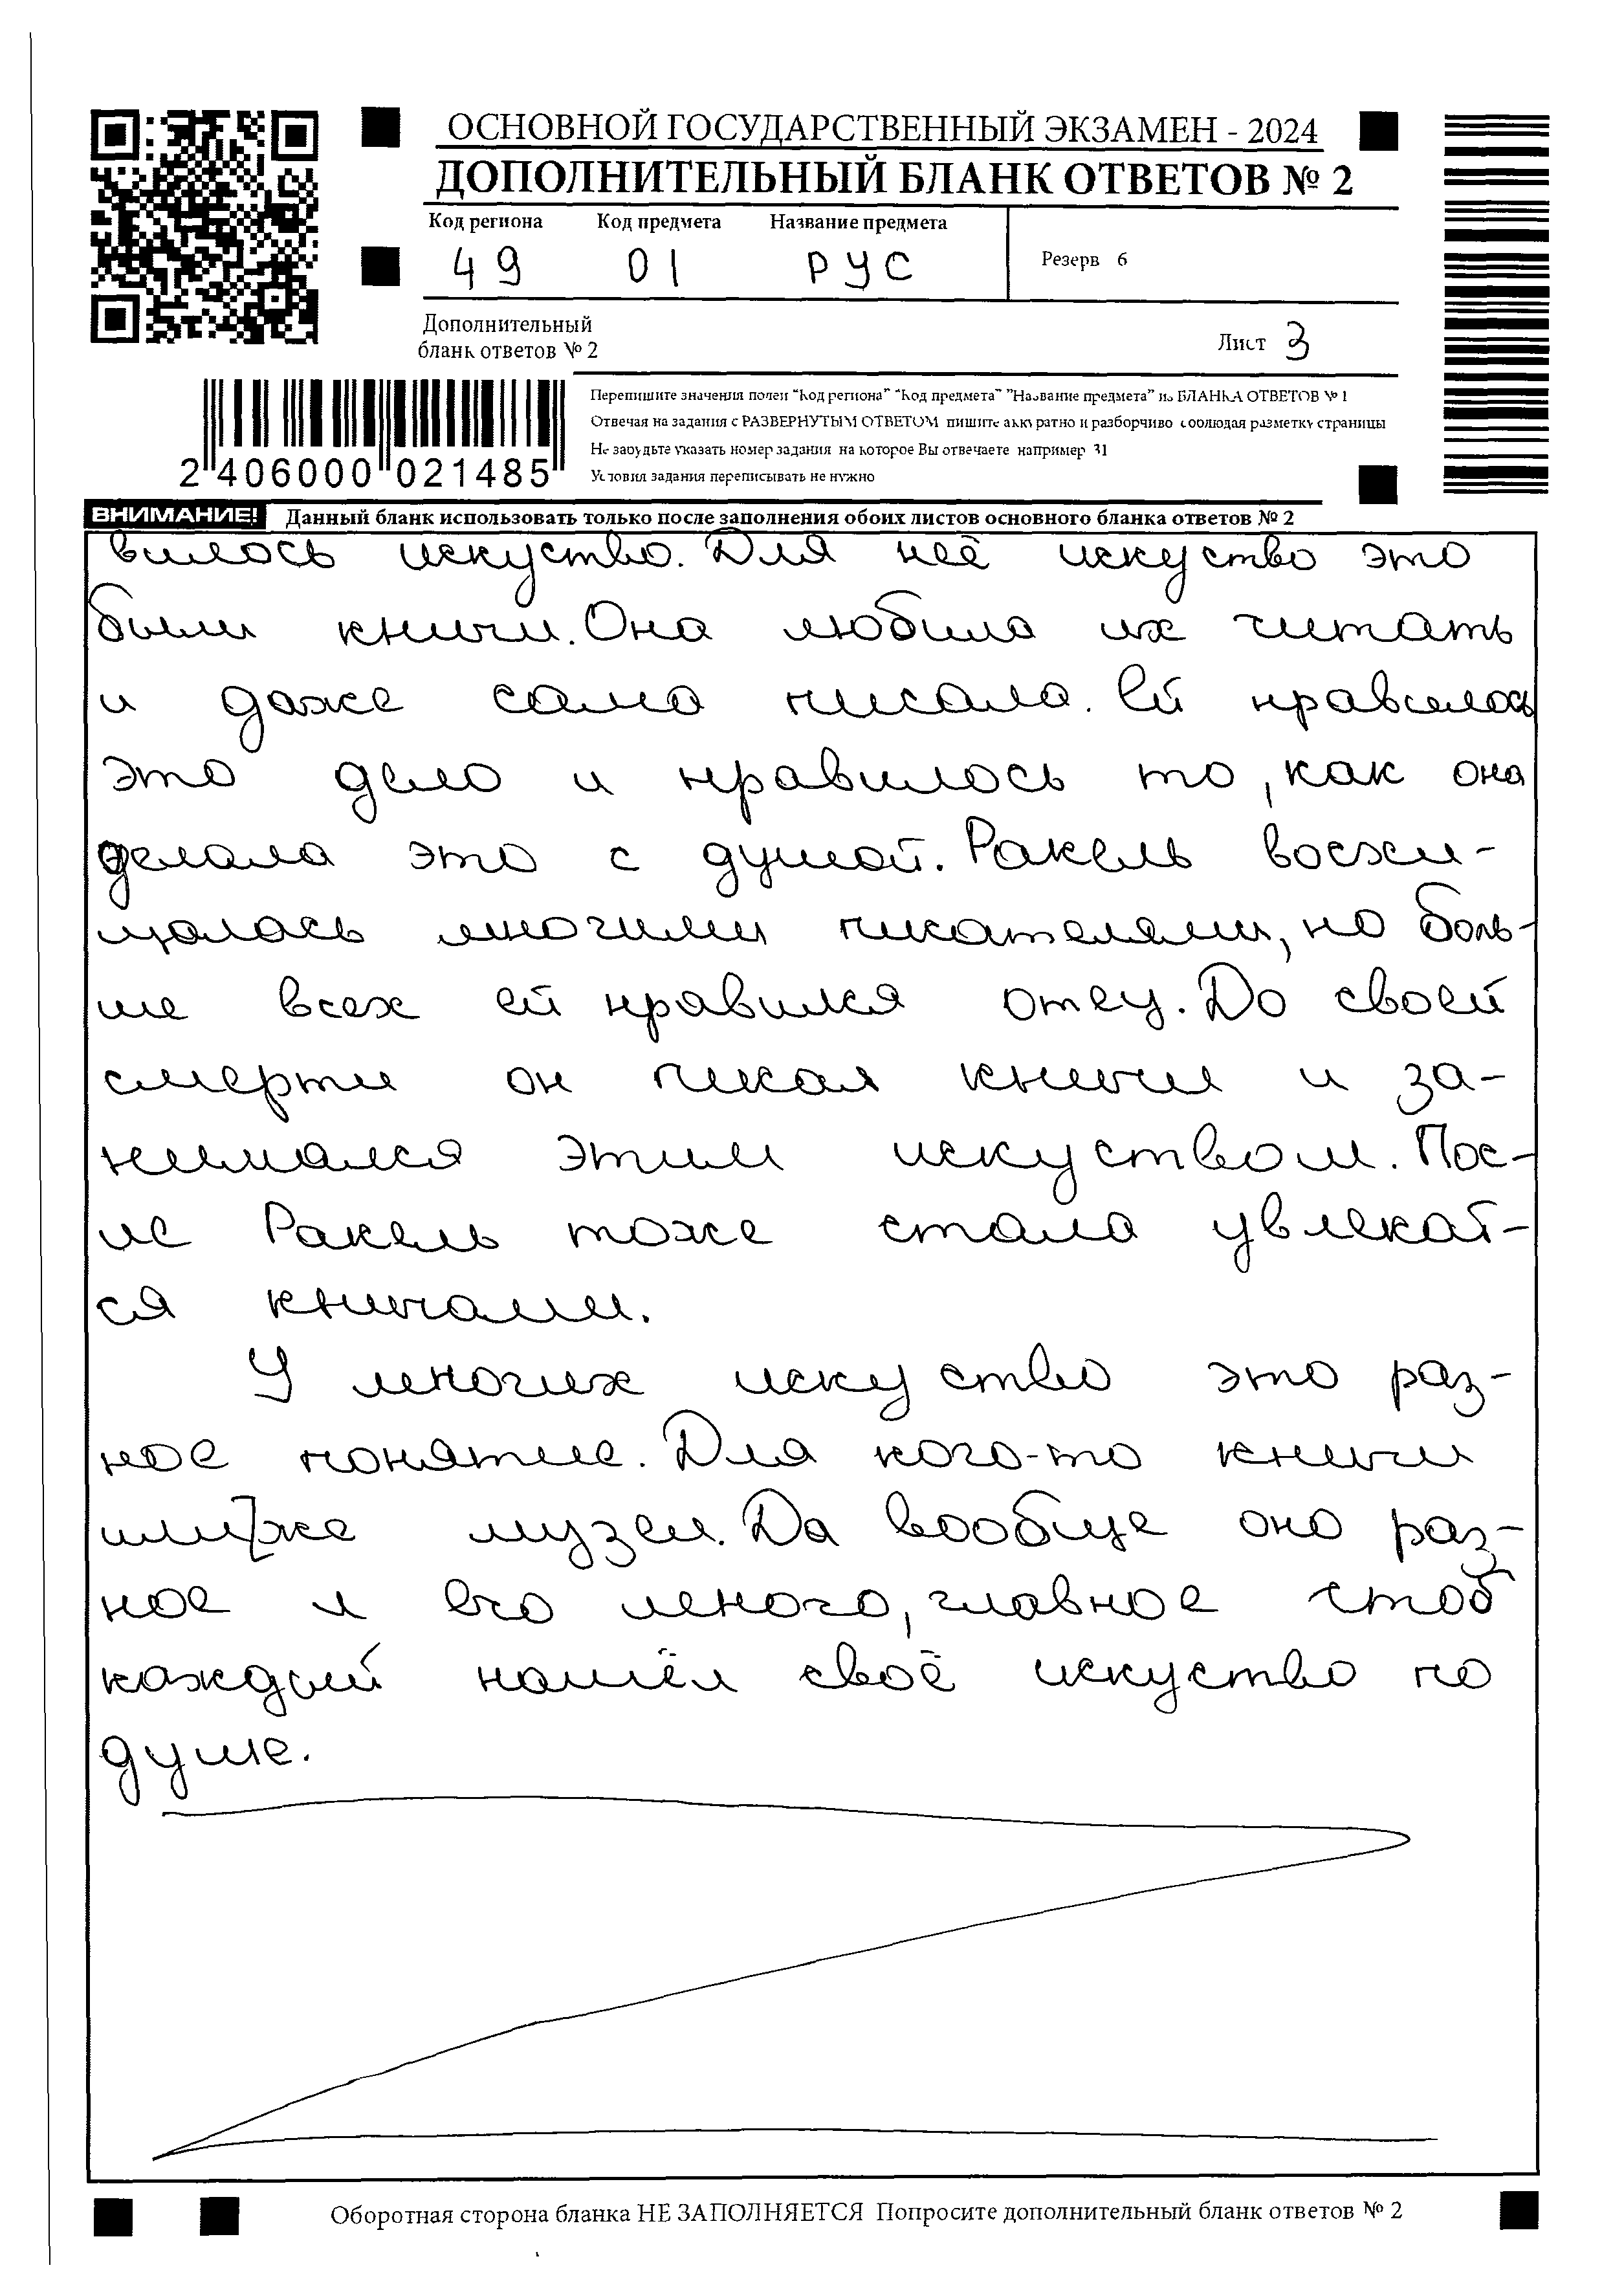 ОСНОВНОЙ ГОСУДАРСТВЕННЫЙ ЭКЗАМЕН - 2024
ДОПОЛНИТЕЛЬНЫЙ БЛАНК ОТВЕТОВ № 2
Код региона Код предмета Название предмета
49 01 РУС
Резерв 6
Дополнительный
бланк ответов № 2
Лист 3
Перепишите значения полей "Код региона" "Код предмета" "Название предмета" из БЛАНКА ОТВЕТОВ № 1
Отвечая на задания с РАЗВЕРНУТЫМ ОТВЕТОМ пишите аккуратно и разборчиво соблюдая разметку страницы
Не забудьте указать номер задания на которое Вы отвечаете например 31
Условия задания переписывать не нужно
2 406000 021485
ВНИМАНИЕ! Данный бланк использовать только после заполнения обоих листов основного бланка ответов № 2
вилось искуство. Для неё искуство это
были книги. Она любила их читать
и даже сама писала. Ей нравилось
это дело и нравилось то, как она
делала это с душой. Ракель восхи-
щалась многими писателями, но боль-
ше всех ей нравился отец. До своей
смерти он писал книги и за-
нимался этим искуством. Пос-
ле Ракель тоже стала увлекат-
ся книгами.
У многих искуство это раз-
ное понятие. Для кого-то книги
или же музеи. Да вообще оно раз-
ное и его много, главное чтоб
каждый нашёл своё искуство по
душе.
Оборотная сторона бланка НЕ ЗАПОЛНЯЕТСЯ Попросите дополнительный бланк ответов № 2